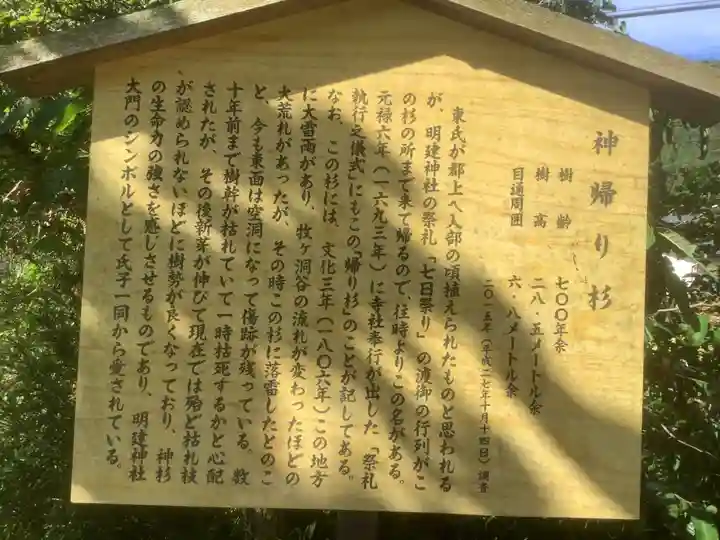 神帰り杉
樹齢　七〇〇年余
樹高　二八・五メートル余
目通周囲　六・八メートル余
二〇一五年（平成二七年十月十四日）調査
東氏が郡上へ入部の頃植えられたものと思われる
が、明建神社の祭礼「七日祭り」の渡御の行列がこ
の杉の所まで来て帰るので、往時よりこの名がある。
元禄六年（一六九三年）に寺社奉行が出した「祭礼
執行之儀式」にもこの「帰り杉」のことが記してある。
なお、この杉には、文化三年（一八〇六年）この地方
に大雷雨があり、牧ヶ洞谷の流れが変わったほどの
大荒れがあったが、その時この杉に落雷したとのこ
と、今も東面は空洞になって傷跡が残っている。数
十年前まで樹幹が枯れていて一時枯死するかと心配
されたが、その後新芽が伸びて現在では殆ど枯れ枝
が認められないほどに樹勢が良くなっており、神杉
の生命力の強さを感じさせるものであり、明建神社
大門のシンボルとして氏子一同から愛されている。